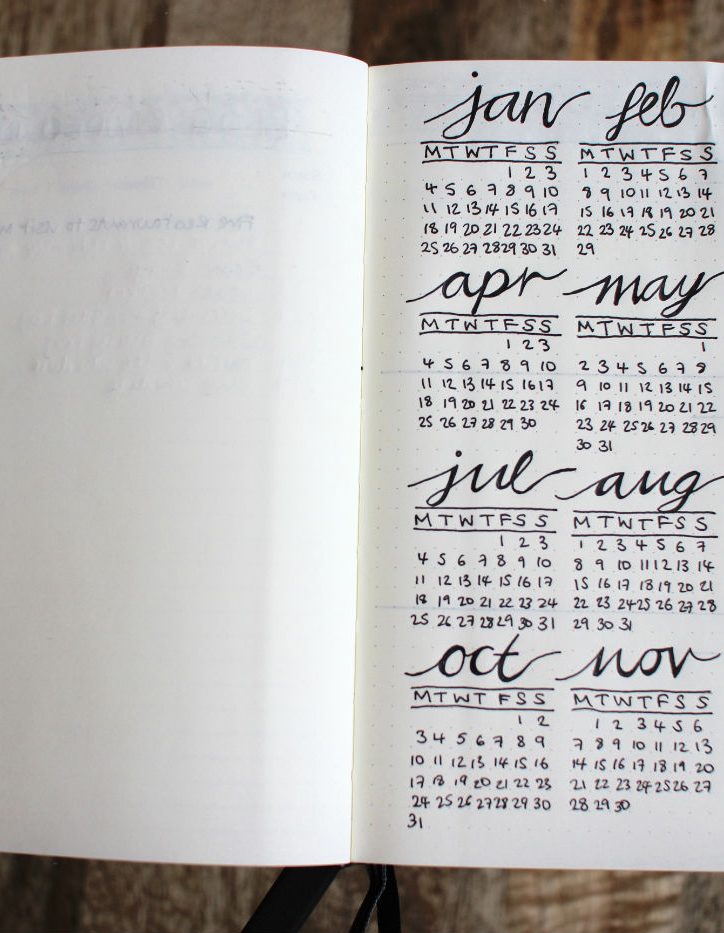 jan
M T W T F S S
1 2 3
4 5 6 7 8 9 10
11 12 13 14 15 16 17
18 19 20 21 22 23 24
25 26 27 28 29 30 31
feb
M T W T F S S
1 2 3 4 5 6 7
8 9 10 11 12 13 14
15 16 17 18 19 20 21
22 23 24 25 26 27 28
29
apr
M T W T F S S
1 2 3
4 5 6 7 8 9 10
11 12 13 14 15 16 17
18 19 20 21 22 23 24
25 26 27 28 29 30
may
M T W T F S S
1
2 3 4 5 6 7 8
9 10 11 12 13 14 15
16 17 18 19 20 21 22
23 24 25 26 27 28 29
30 31
jul
M T W T F S S
1 2 3
4 5 6 7 8 9 10
11 12 13 14 15 16 17
18 19 20 21 22 23 24
25 26 27 28 29 30 31
aug
M T W T F S S
1 2 3 4 5 6 7
8 9 10 11 12 13 14
15 16 17 18 19 20 21
22 23 24 25 26 27 28
29 30 31
oct
M T W T F S S
1 2
3 4 5 6 7 8 9
10 11 12 13 14 15 16
17 18 19 20 21 22 23
24 25 26 27 28 29 30
31
nov
M T W T F S S
1 2 3 4 5 6
7 8 9 10 11 12 13
14 15 16 17 18 19 20
21 22 23 24 25 26 27
28 29 30